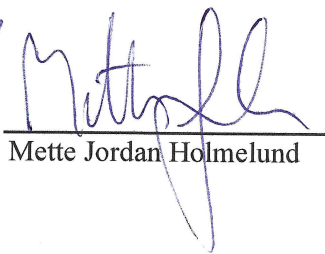 Mette Jordan Holmelund